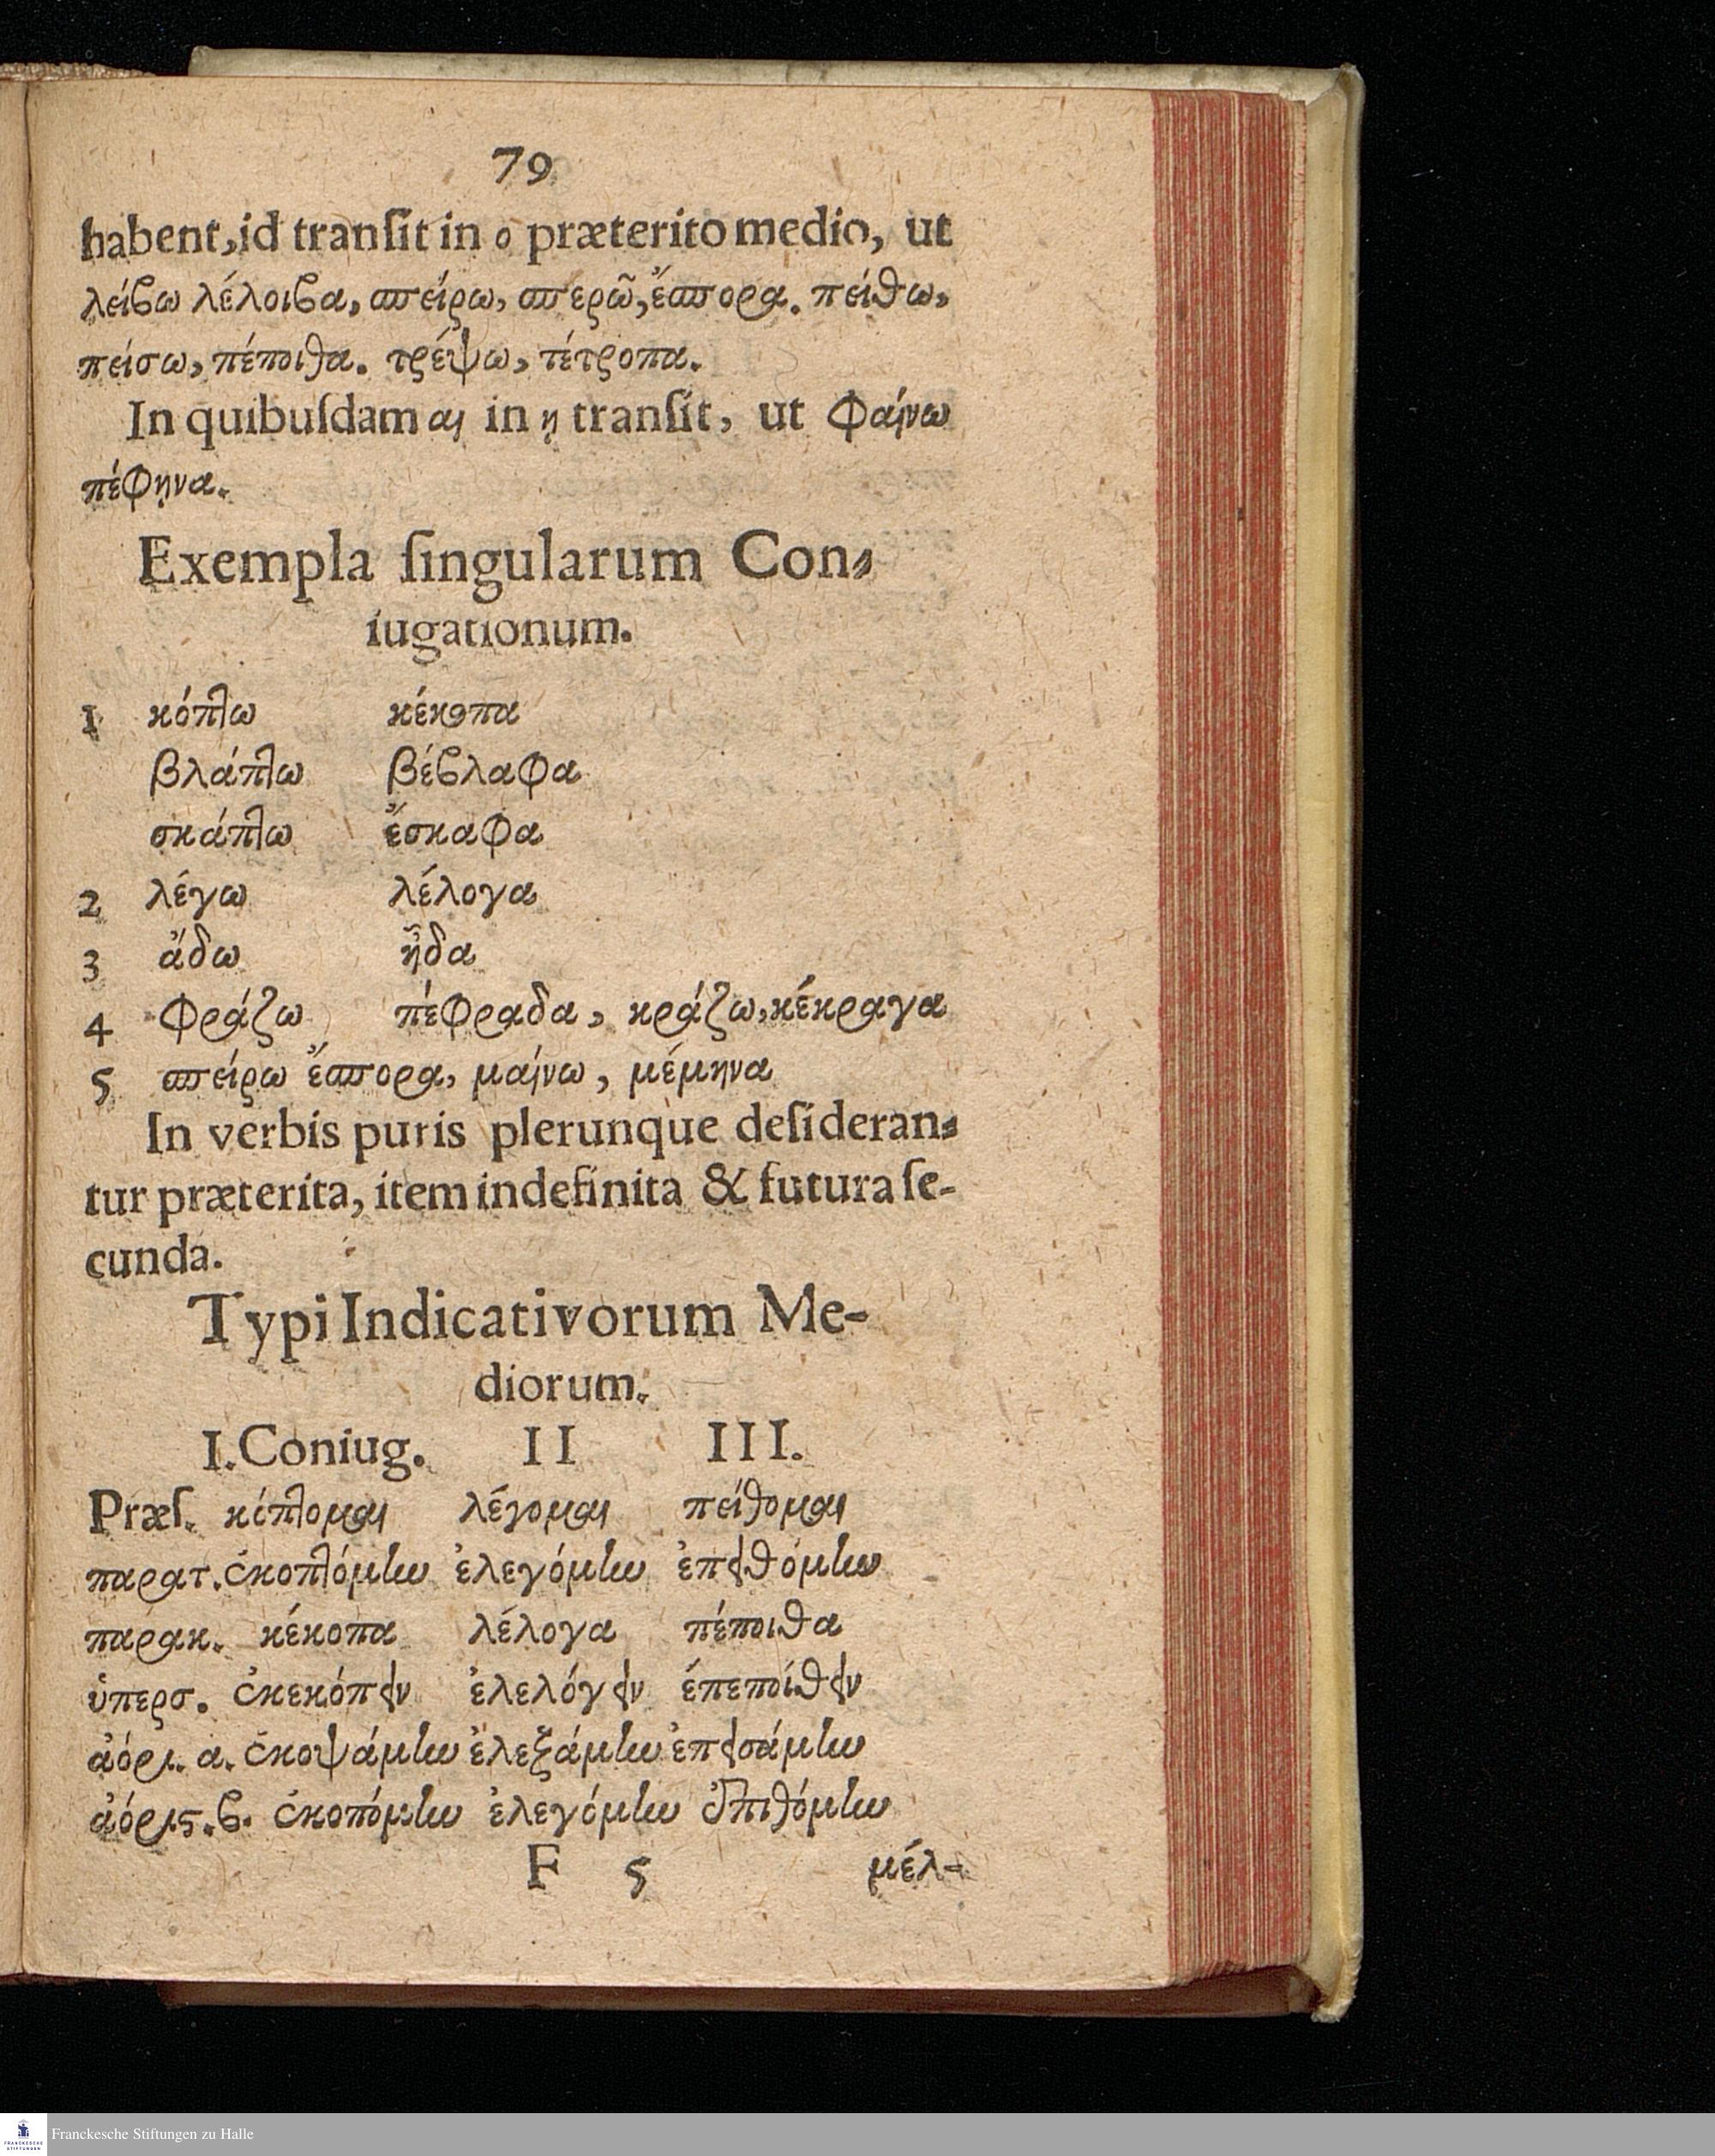 79
habent, id tranſit in ο præterito medio, ut
λείϐω λέλοιϐα, σπείρω, σπερῶ, ἔσπορα. πείθω,
πείσω, πέποιθα. τρέψω, τέτροπα.
In quibuſdam αι in η tranſit, ut φαίνω
πέφηνα.
Exempla ſingularum Con-
iugationum.
1 κόπτω κέκοπα
βλάπτω βέϐλαφα
σκάπτω ἔσκαφα
2 λέγω λέλογα
3 ἄδω ἦδα
4 φράζω πέφραδα, κράζω, κέκραγα
5 σπείρω ἔσπορα, μαίνω, μέμηνα
In verbis puris plerunque deſideran-
tur præterita, item indefinita & futura ſe-
cunda.
Typi Indicativorum Me-
diorum.
I. Coniug. II III.
Præſ. κόπτομαι λέγομαι πείθομαι
παρατ. ἐκοπτόμην ἐλεγόμην ἐπειθόμην
παρακ. κέκοπα λέλογα πέποιθα
ὑπερσ. ἐκεκόπειν ἐλελόγειν ἐπεποίθειν
ἀόρι. α. ἐκοψάμην ἐλεξάμην ἐπεισάμην
ἀόριϛ. ϐ. ἐκοπόμην ἐλεγόμην ἐπιθόμην
F 5 μέλ-
Franckesche Stiftungen zu Halle
FRANCKESCHE
STIFTUNGEN